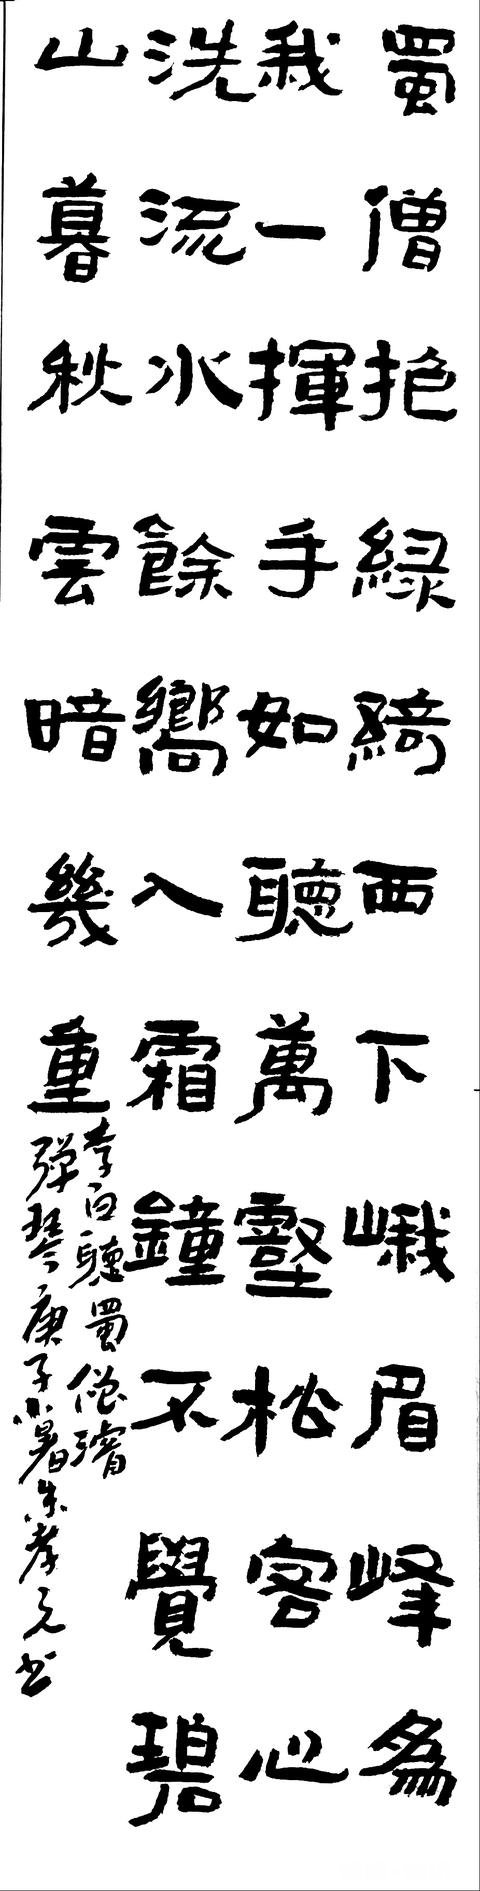 蜀僧抱綠綺西下峨眉峰為
我一揮手如聽萬壑松客心
洗流水餘響入霜鐘不覺碧
山暮秋雲暗幾重
李白聽蜀僧濬
彈琴庚子小暑朱孝元书